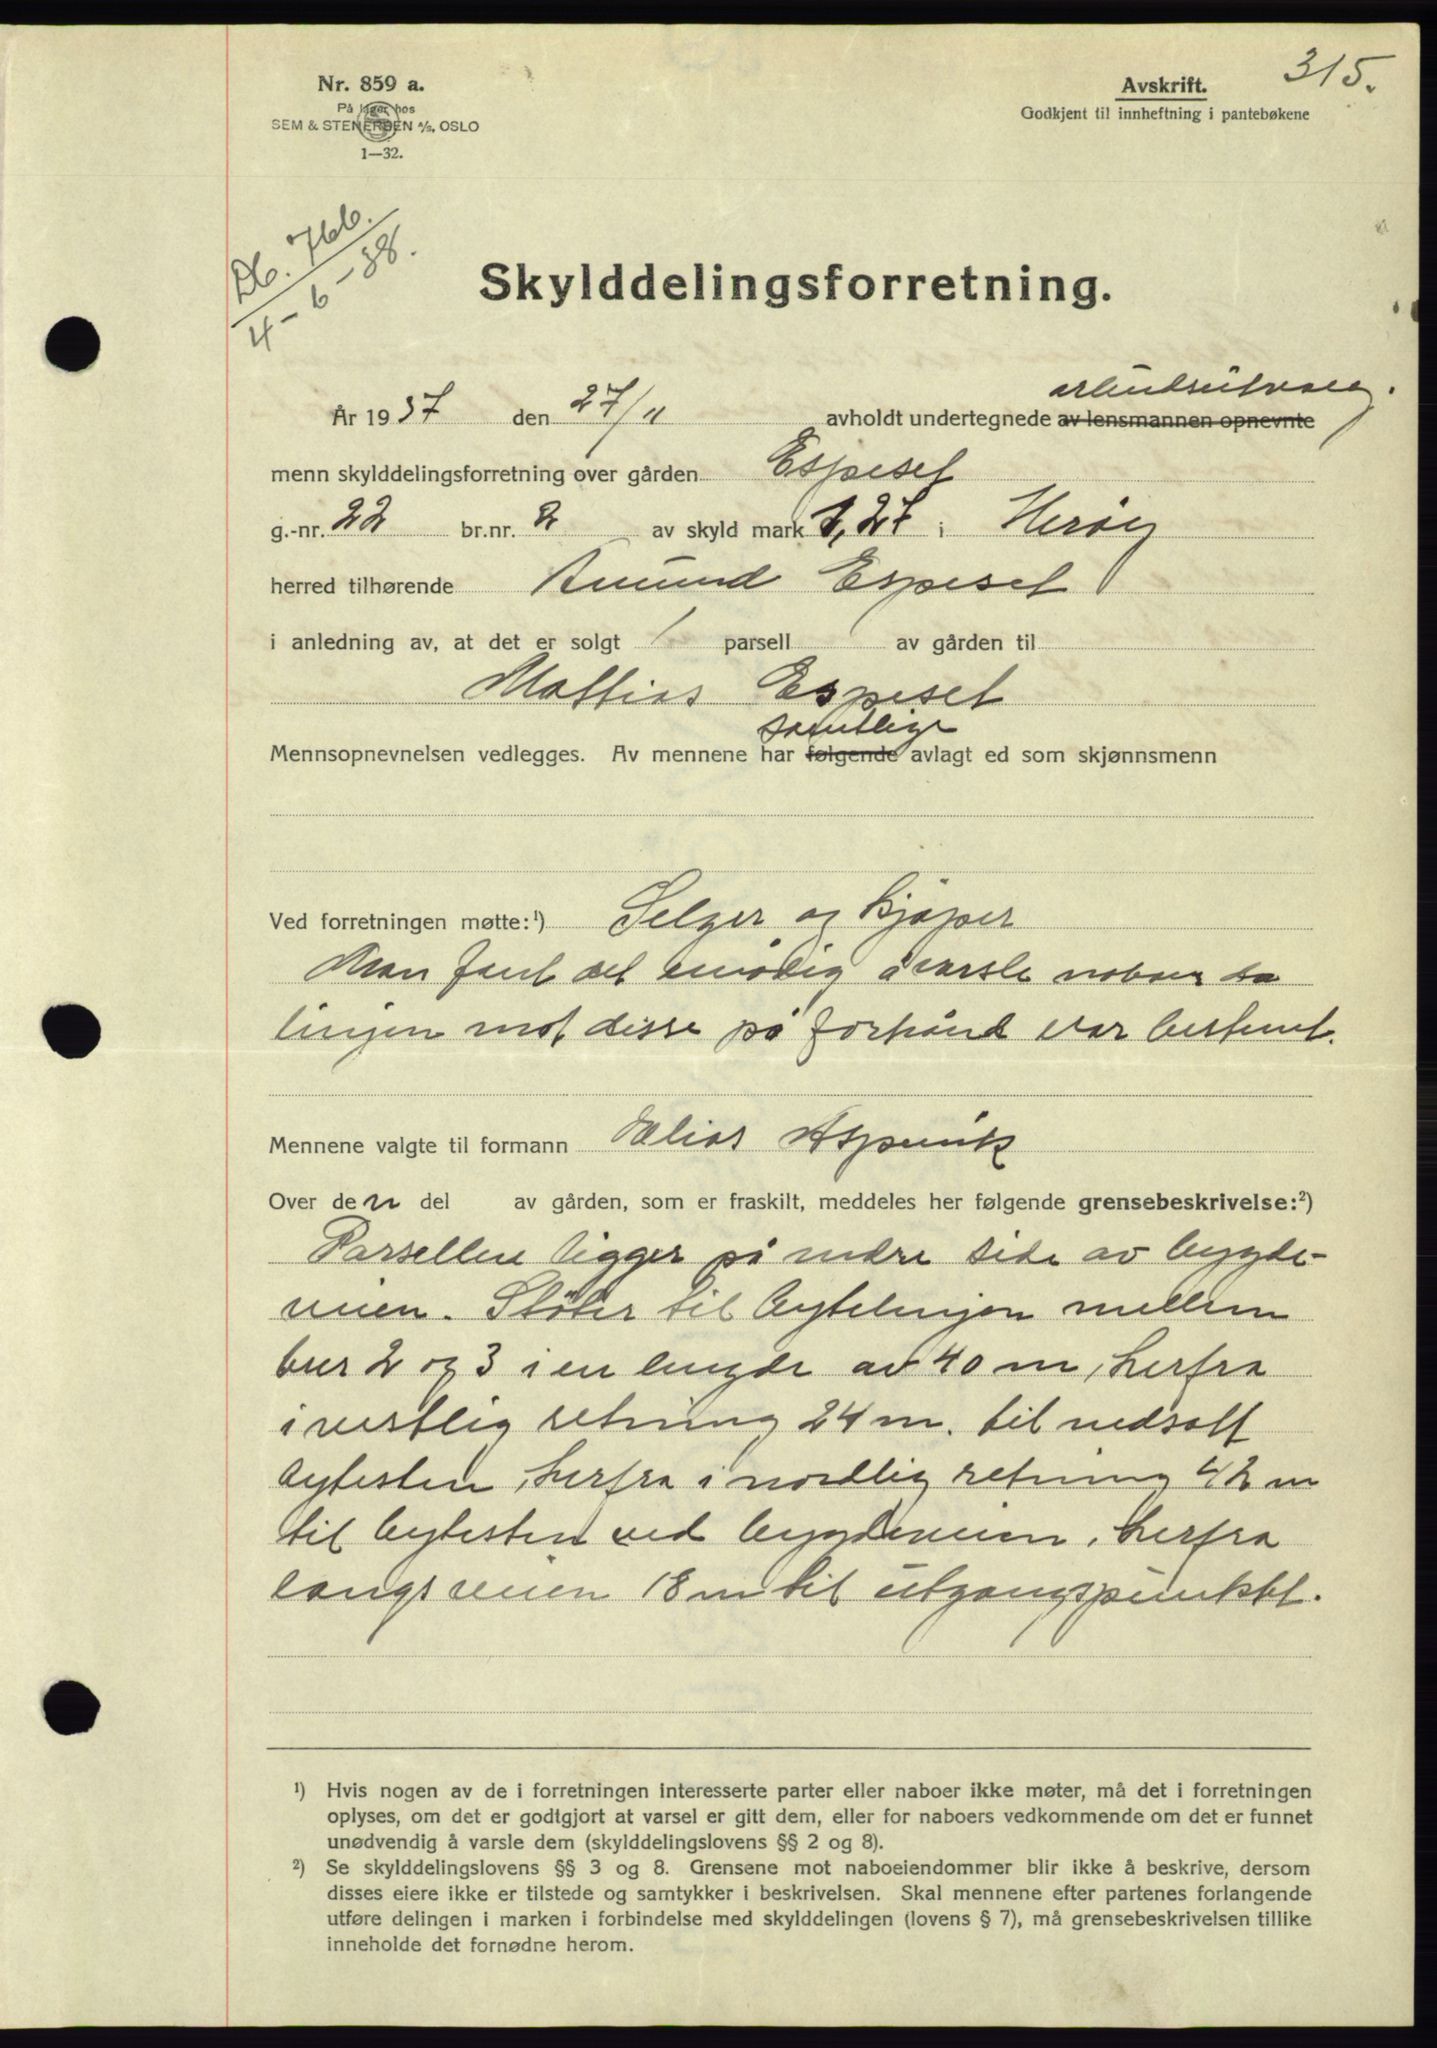 315.
Nr. 859 a.
På lager hos
SEM & STENERSEN A/S, OSLO
1—32.
Avskrift.
Godkjent til innheftning i pantebøkene
Db. 766.
4-6-38.
Skylddelingsforretning.
arbeidsutvalg.
År 1937 den 27/11 avholdt undertegnede av lensmannen opnevnte
menn skylddelingsforretning over gården Espeset
g.-nr. 22 br.nr. 2 av skyld mark 1,27 i Herøy
herred tilhørende Amund Espeset
i anledning av, at det er solgt 1 parsell av gården til
Mattias Espeset
samtlige
Mennsopnevnelsen vedlegges. Av mennene har følgende avlagt ed som skjønnsmenn
Ved forretningen møtte:¹) Selger og kjøper
Man fant det unødig å varsle naboer da
linjen mot disse på forhånd var bestemt.
Mennene valgte til formann Elias Aspevik
Over den del av gården, som er fraskilt, meddeles her følgende grensebeskrivelse:²)
Parsellen ligger på nedre side av bygde-
veien. Støter til bytelinjen mellem
bnr 2 og 3 i en lengde av 40 m, herfra
i vestlig retning 24 m. til nedsatt
bytesten, herfra i nordlig retning 42 m
til bytesten ved bygdeveien, herfra
langs veien 18 m til utgangspunktet.
¹) Hvis nogen av de i forretningen interesserte parter eller naboer ikke møter, må det i forretningen
oplyses, om det er godtgjort at varsel er gitt dem, eller for naboers vedkommende om det er funnet
unødvendig å varsle dem (skylddelingslovens §§ 2 og 8).
²) Se skylddelingslovens §§ 3 og 8. Grensene mot naboeiendommer blir ikke å beskrive, dersom
disses eiere ikke er tilstede og samtykker i beskrivelsen. Skal mennene efter partenes forlangende
utføre delingen i marken i forbindelse med skylddelingen (lovens § 7), må grensebeskrivelsen tillike
inneholde det fornødne herom.